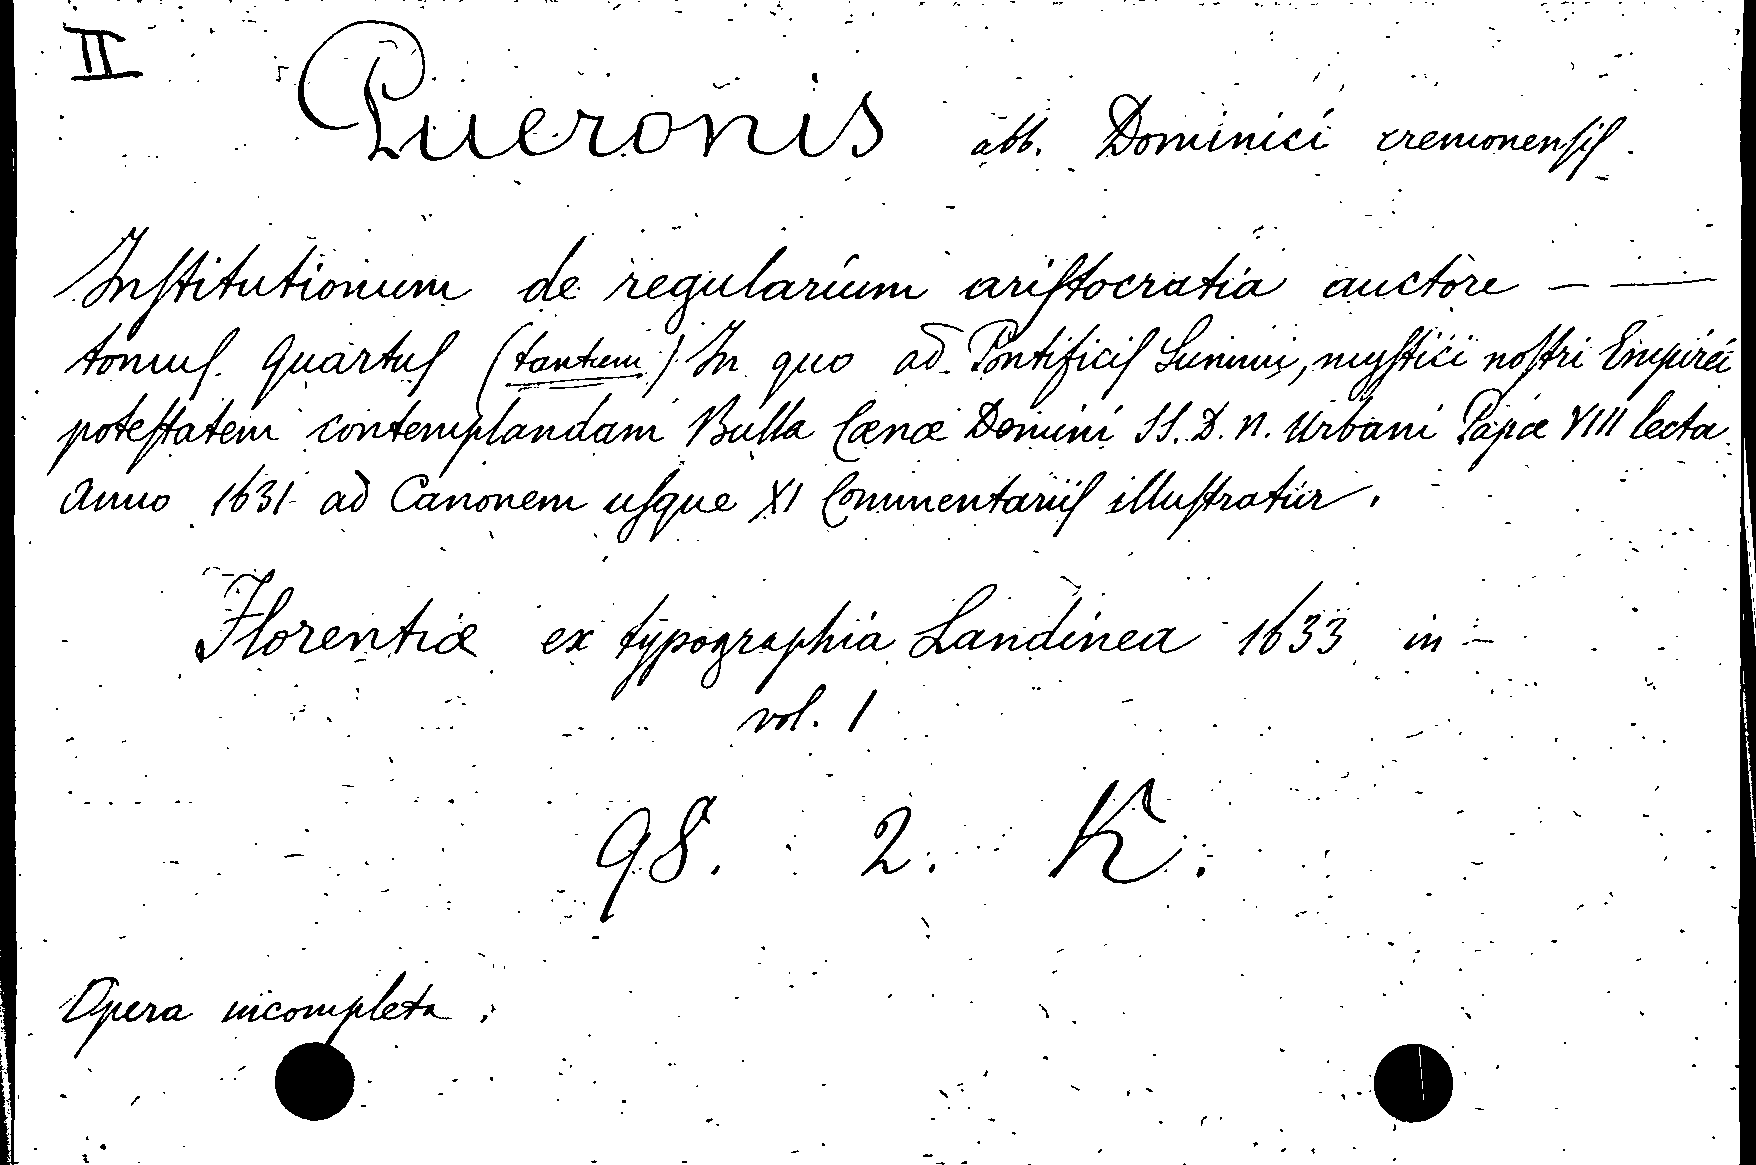 II
Pueronis abb. Dominici cremonensis.
Institutionum de regularium aristocratia auctore — ——
tomus Quartus (tantum) In quo ad Pontificis Summi, mystici nostri Empirei
potestatem contemplandam Bulla Cœnæ Domini SS. D. N. Urbani Papæ VIII lecta
Anno 1631 ad Canonem usque XI Commentariis illustratur.
Florentiæ ex typographia Landinea 1633 in -
vol. 1
98. 2. K.
Opera incompleta.